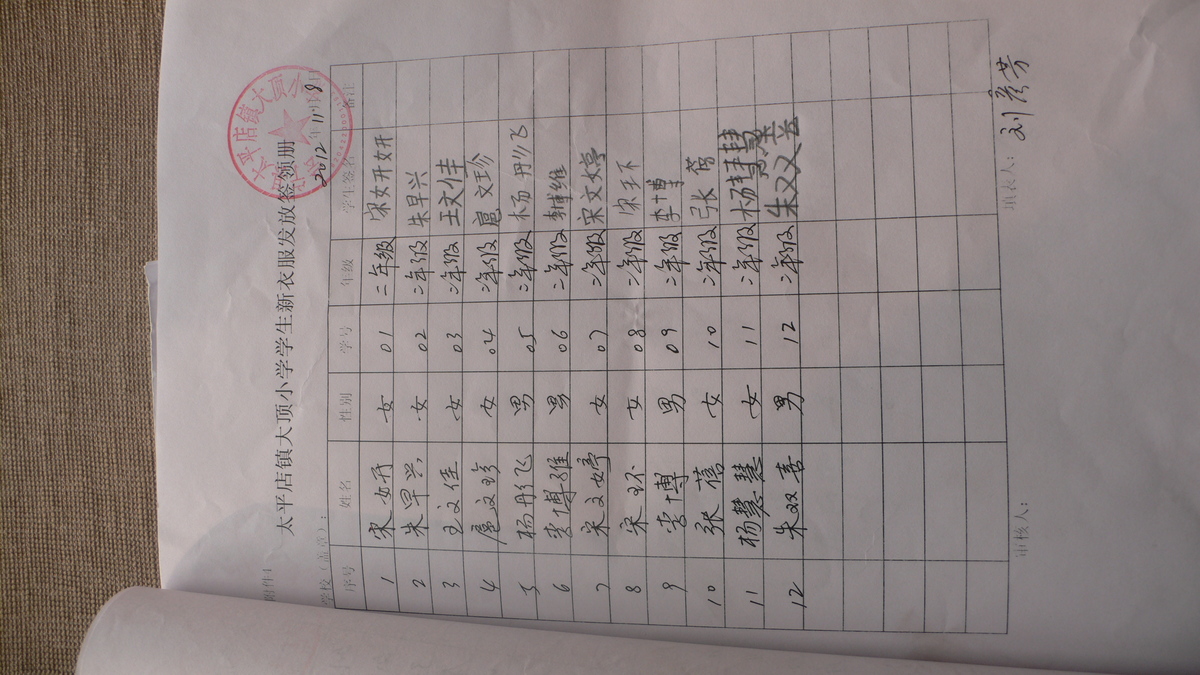 附件1
太平店镇大顶小学学生新衣服发放签领册
学校（盖章）： 2012年11月8日
序号 姓名 性别 学号 年级 学生签名 备注
1 宋妍 女 01 二年级 宋妍妍
2 朱早兴 女 02 二年级 朱早兴
3 王文佳 女 03 二年级 王文佳
4 扈文珍 女 04 二年级 扈文珍
5 杨丹飞 男 05 二年级 杨丹飞
6 李博维 男 06 二年级
7 宋文婷 女 07 二年级 宋文婷
8 宋环 女 08 二年级 宋环
9 李博 男 09 二年级 李博
10 张蓓 女 10 二年级 张
11 杨慧慧 女 11 二年级 杨
12 朱双喜 男 12 二年级 朱
审核人： 填表人：刘彦芳
太平店镇大顶小